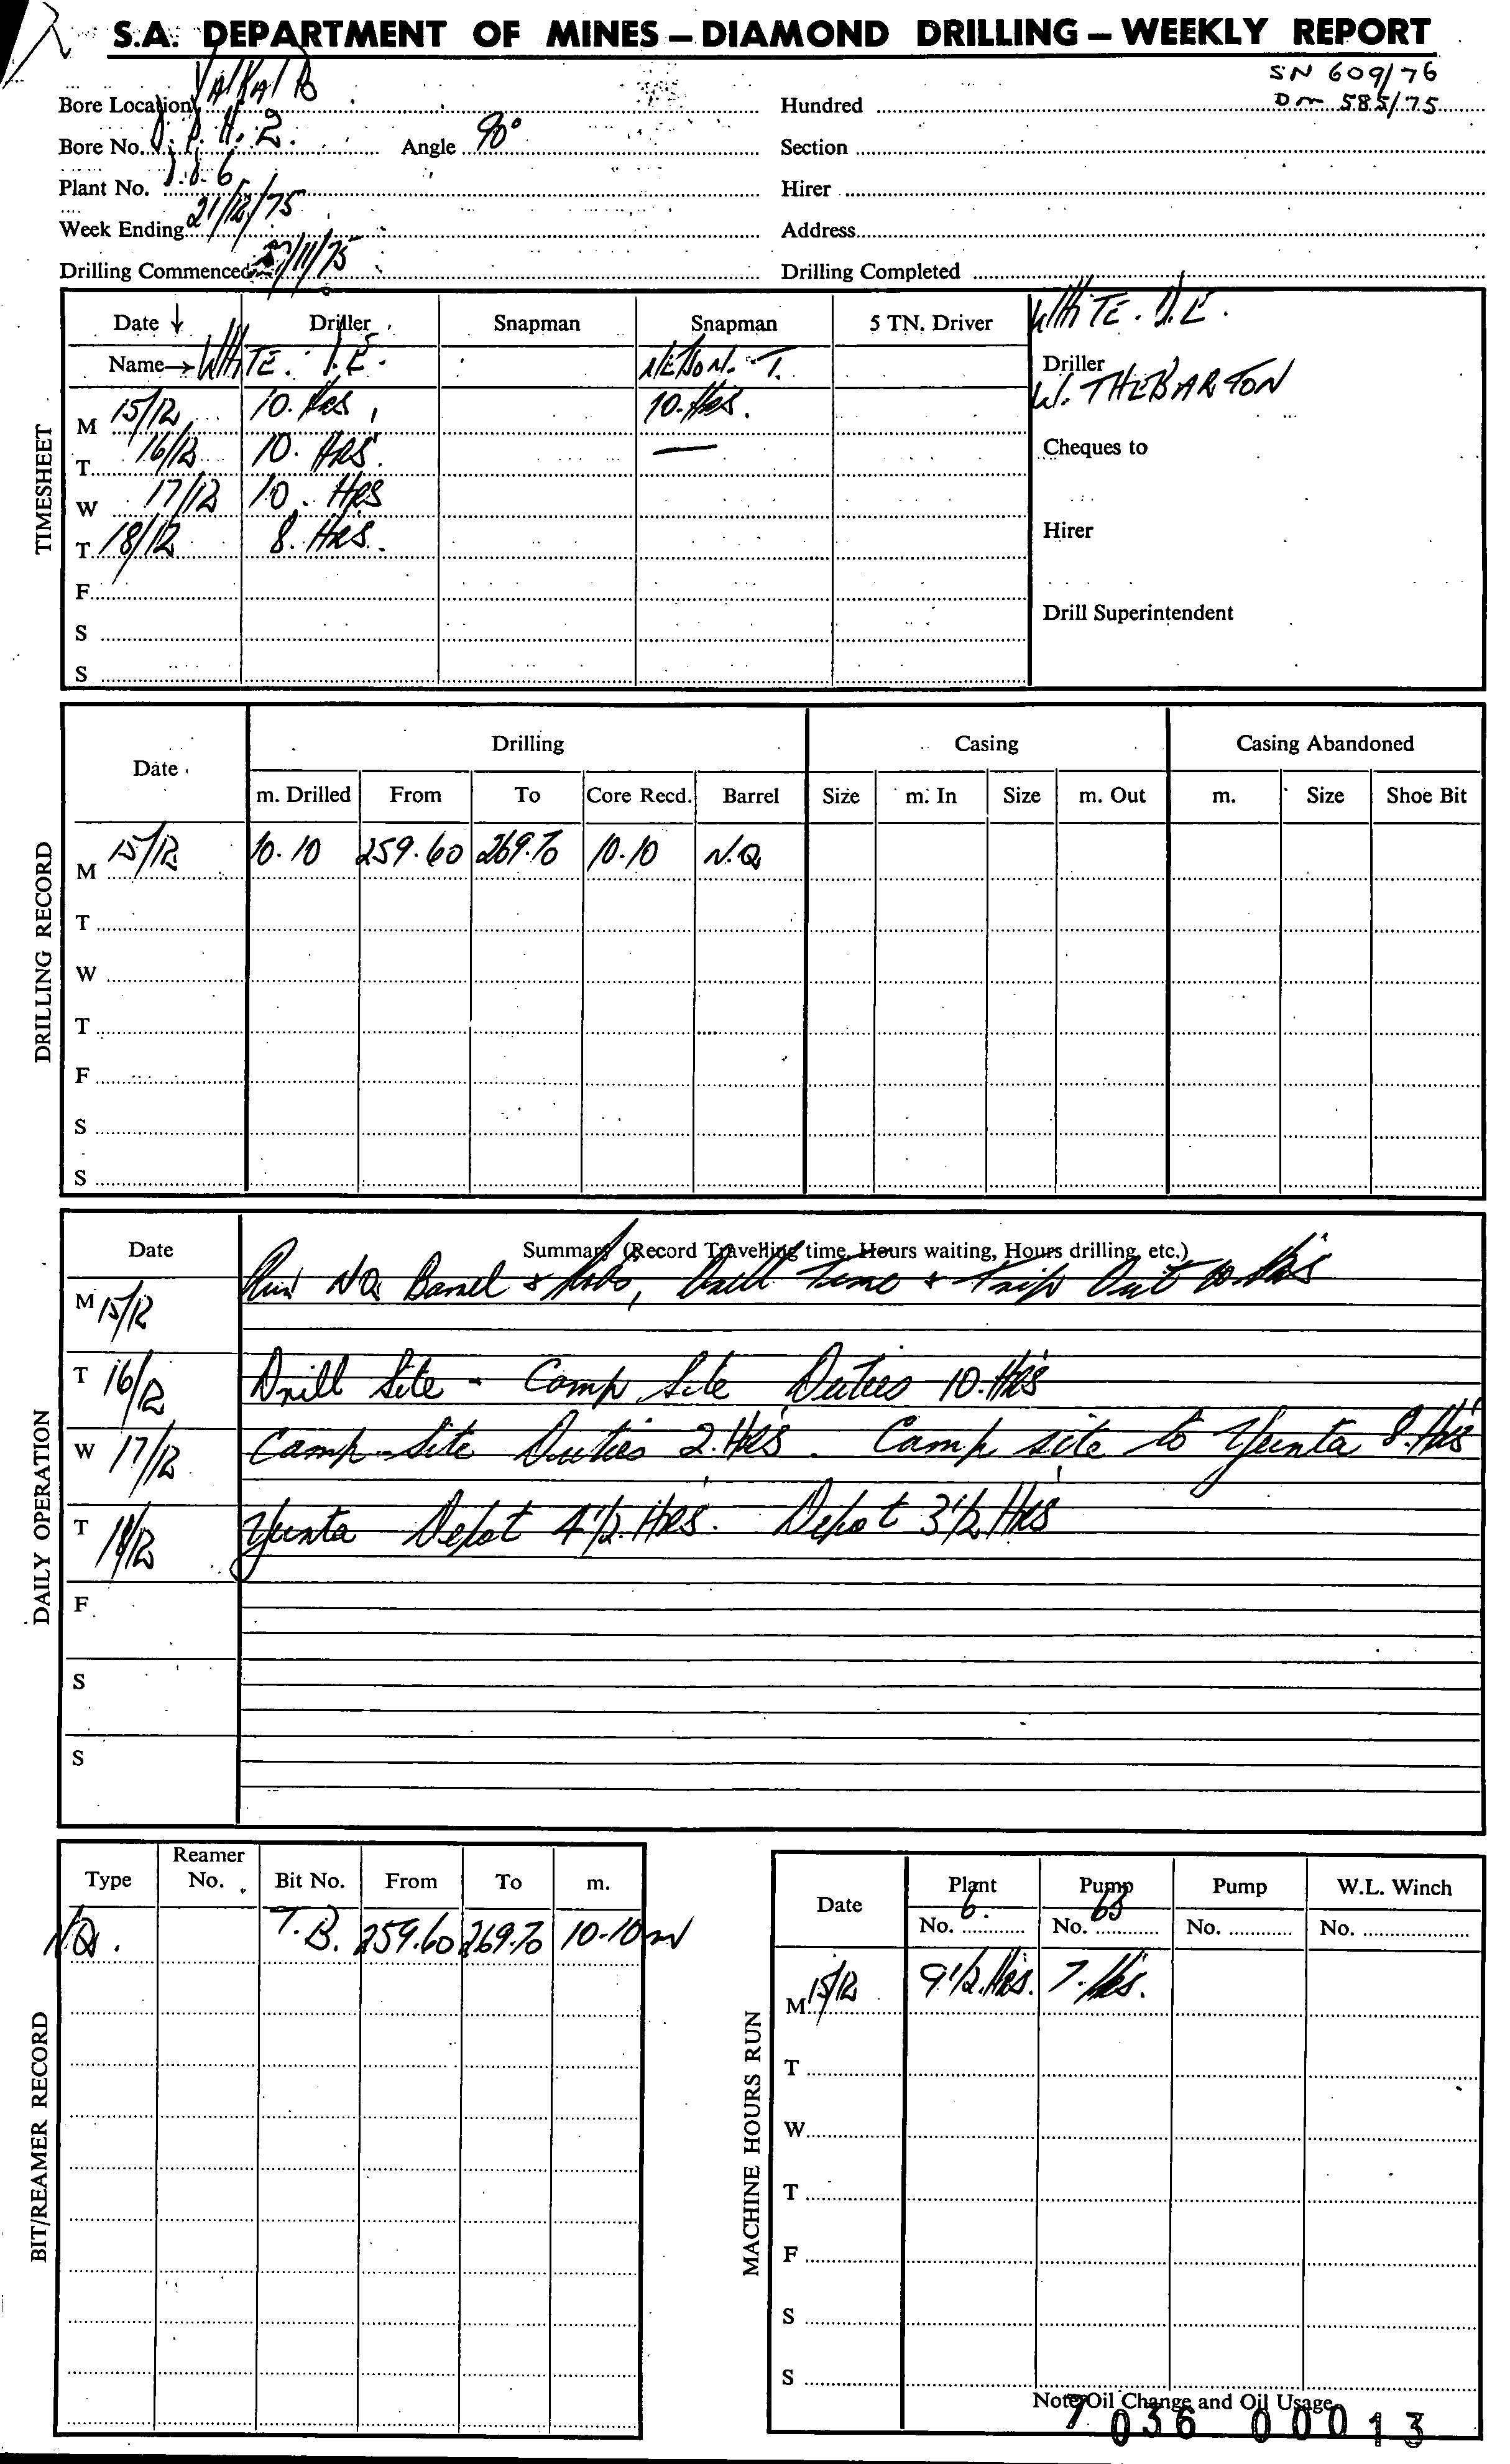 S.A. DEPARTMENT OF MINES – DIAMOND DRILLING – WEEKLY REPORT
SN 609/76
Dm 585/75
Bore Location YALKALPO Hundred
Bore No. D.D.H. 2. Angle 90° Section
Plant No. 6 Hirer
Week Ending 21/12/75 Address
Drilling Commenced /11/75 Drilling Completed
TIMESHEET
Date ↓ Driller Snapman Snapman 5 TN. Driver WHITE. I.E.
Name → WHITE. I.E. T. Driller
M 15/12 10. Hrs. 10. Hrs. W. THEBARTON
T 16/12 10. HRS. — Cheques to
W 17/12 10. HRS
T 18/12 8. HRS. Hirer
F
S Drill Superintendent
S
DRILLING RECORD
Date Drilling Casing Casing Abandoned
m. Drilled From To Core Recd. Barrel Size m. In Size m. Out m. Size Shoe Bit
M 15/12 10.10 259.60 269.70 10.10 N.Q
T
W
T
F
S
S
DAILY OPERATION
Date Summary (Record Travelling time, Hours waiting, Hours drilling, etc.)
M 15/12 Run NQ Barrel & Rods, Drill Time & Trip Out 10 Hrs
T 16/12 Drill Site - Camp Site Duties 10. HRS
W 17/12 Camp Site Duties 2. HRS. Camp site to Yunta 8. Hrs
T 18/12 Yunta Depot 4 1/2. HRS. Depot 3 1/2 HRS
F
S
S
BIT/REAMER RECORD
Type Reamer No. Bit No. From To m.
NQ. T.B. 259.60 269.70 10-10 m
MACHINE HOURS RUN
Date Plant Pump Pump W.L. Winch
No. 6. No. 63 No. No.
M 15/12 9 1/2. Hrs. 7. Hrs.
T
W
T
F
S
S
Note Oil Change and Oil Usage
7 036 00013